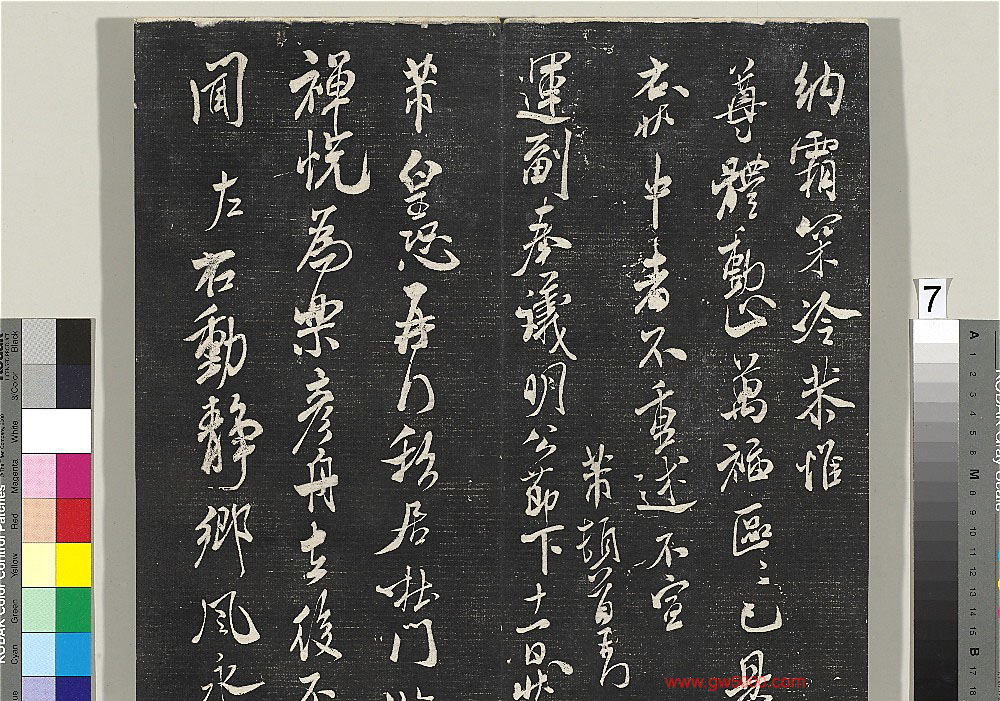 納霜寒冷恭惟
尊體動止萬福區區已具
右狀中者不重述不宣
芾頓首再拜
運副奉議明公節下十一日狀
芾皇恐再行移居杜門
禪悅為樂彥舟去後不
聞左右動靜鄉風永
7
www.gw5000.com
KODAK Color Control Patches
Black
3/Color
White
Magenta
Red
Yellow
Green
Cyan
A 1 2 3 4 5 6 M 8 9 10 11 12 13 14 15 B 17 18